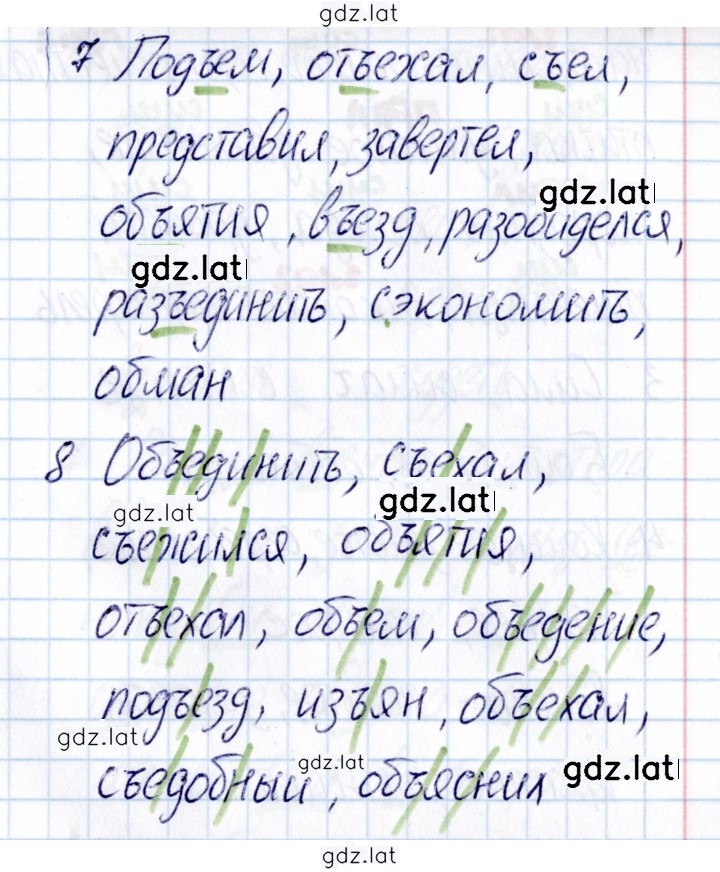 gdz.lat
7 Подъем, отъехал, съел,
представил, завертел,
gdz.lat
объятия, въезд, разобиделся,
gdz.lat
разъединить, сэкономить,
обман
8 Объединить, съехал,
gdz.lat
gdz.lat
съежился, объятия,
отъехал, объем, объедение,
подъезд, изъян, объехал,
gdz.lat
gdz.lat
gdz.lat
съедобный, объяснил
gdz.lat